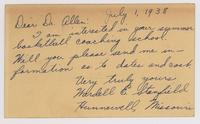 July 1, 1938
Dear Dr. Allen:
I am interested in your summer
basketball coaching school.
Will you please send me in-
formation as to dates and cost.
Very truly yours,
Wardell E. Stanfield
Hunnewell, Missouri